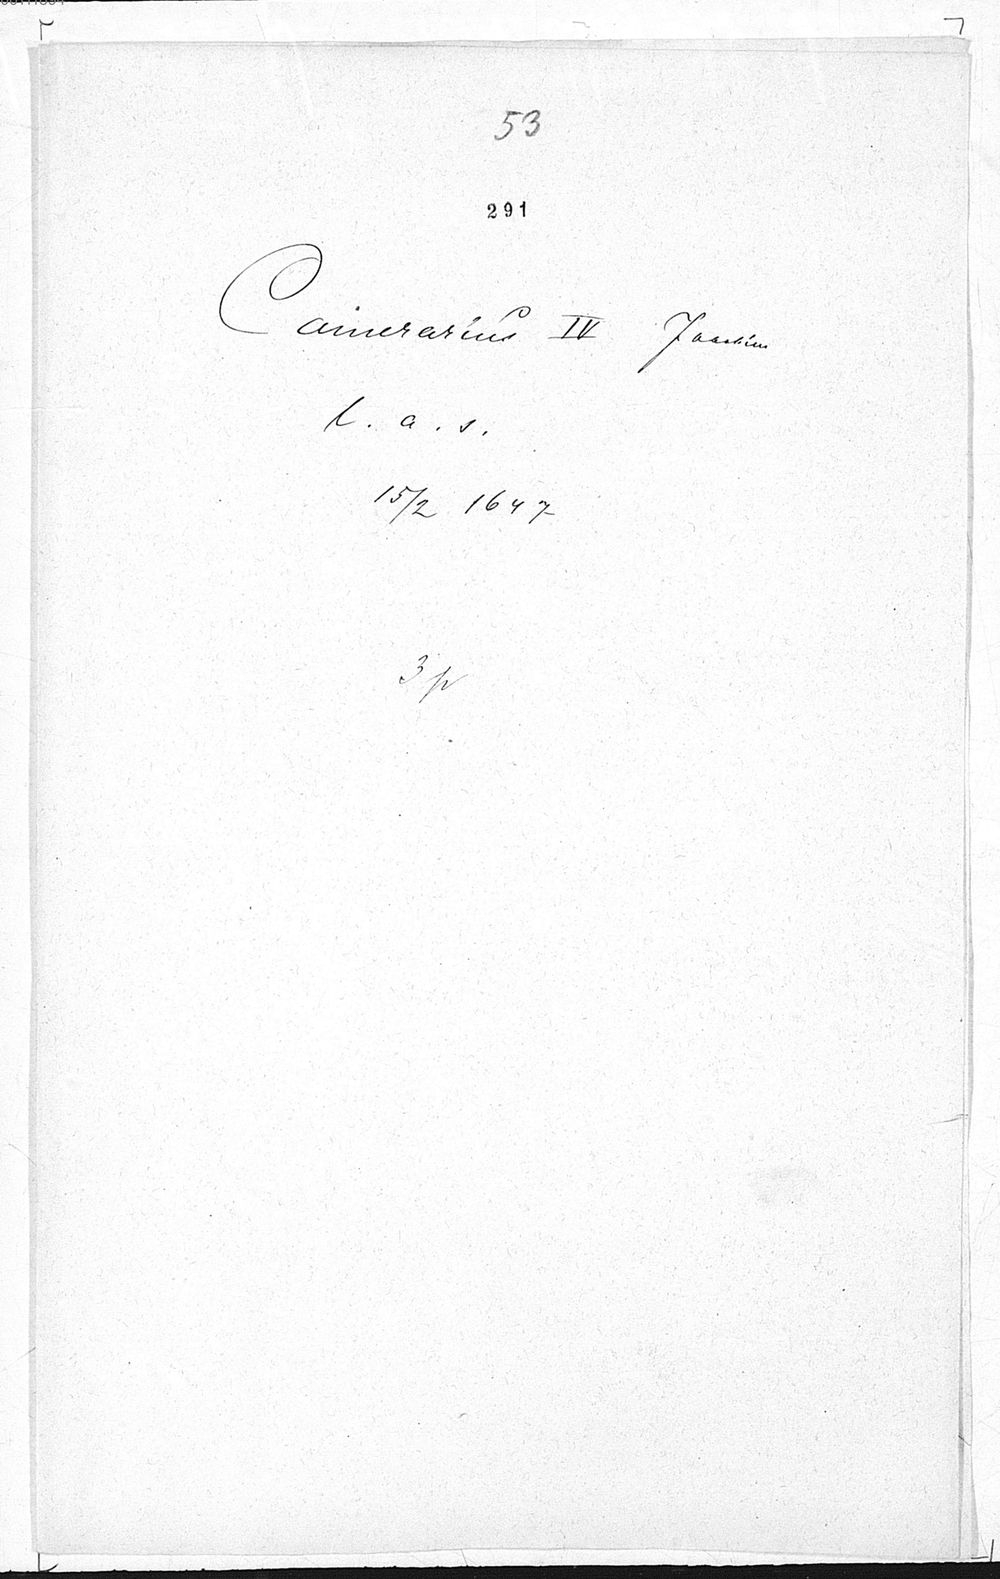 53
291
Camerarius IV Joachim
l. a. s.
15/2 1647
3 p